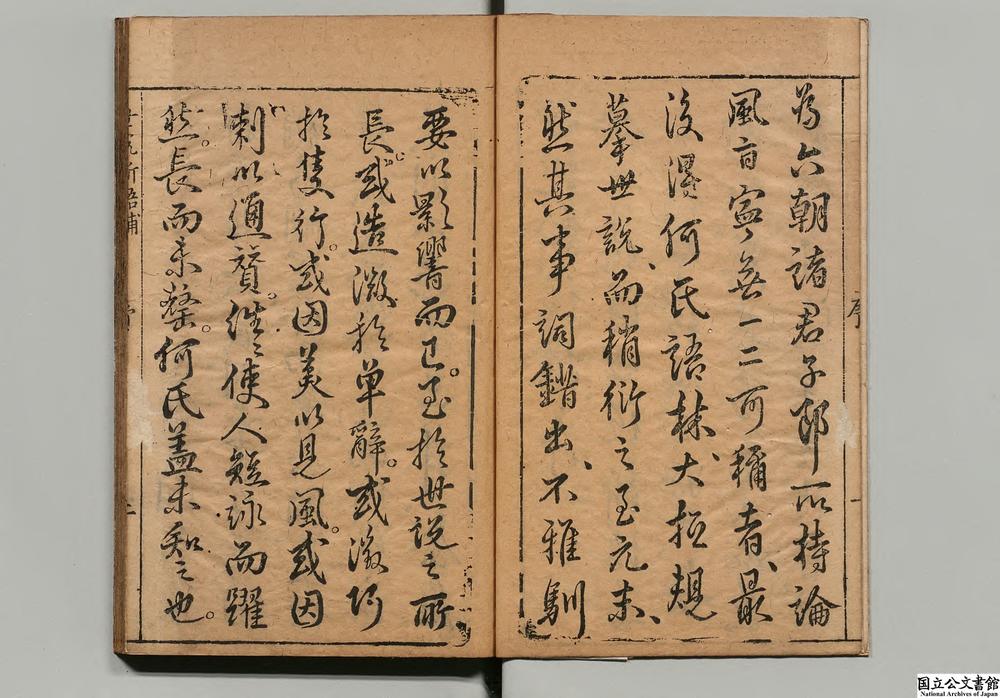 為六朝諸君子即所持論
風旨寧無一二可稱者、最
後得何氏語林、大抵規
摹世說、而稍衍之至元末、
然其事詞錯出、不雅馴
要以影響而已。至於世說之所
長。或造微於單辭。或徵巧
於隻行。或因美以見風。或因
刺以通贊。往々使人短詠而躍
然。長而未罄。何氏蓋未知之也。
序
国立公文書館
National Archives of Japan